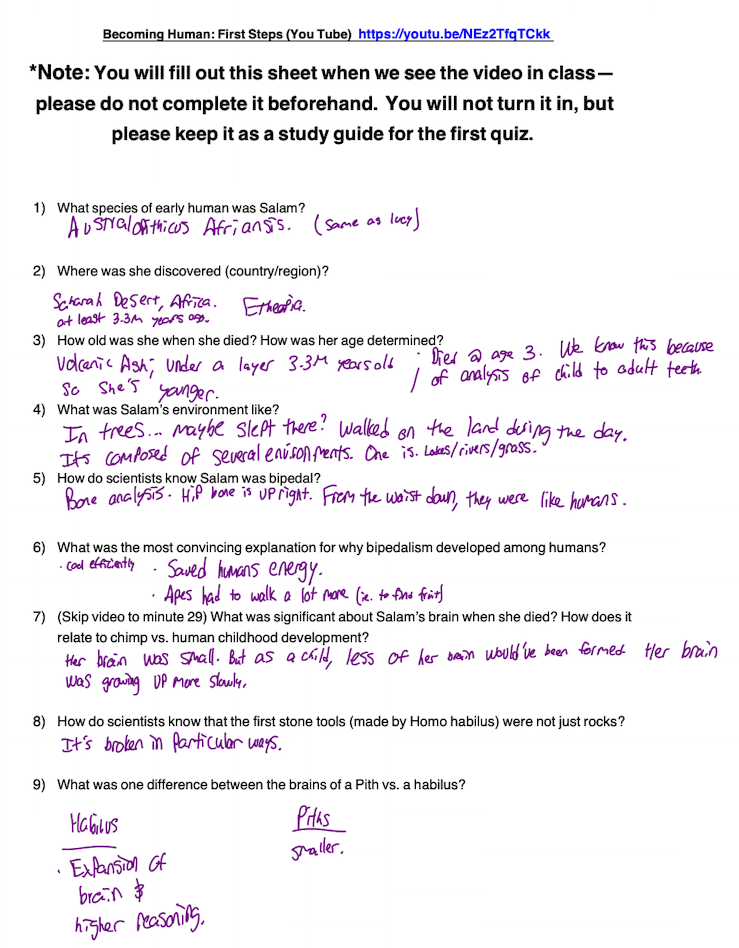 Becoming Human: First Steps (You Tube) https://youtu.be/NEz2TfqTCkk
*Note: You will fill out this sheet when we see the video in class—
please do not complete it beforehand. You will not turn it in, but
please keep it as a study guide for the first quiz.
1) What species of early human was Salam?
Australopithicus Afriansis. (same as lucy)
2) Where was she discovered (country/region)?
Saharah Desert, Africa. Etheopia.
at least 3.3M years ago.
3) How old was she when she died? How was her age determined?
Volcanic Ash; under a layer 3.3M years old / · Died @ age 3. We know this because
so she's younger. of analysis of child to adult teeth
4) What was Salam's environment like?
In trees... maybe slept there? Walked on the land during the day.
Its composed of several environments. One is. Lakes/rivers/grass.
5) How do scientists know Salam was bipedal?
Bone analysis. Hip bone is upright. From the waist down, they were like humans.
6) What was the most convincing explanation for why bipedalism developed among humans?
· cool efficiently · Saved humans energy.
· Apes had to walk a lot more (ie. to find fruit)
7) (Skip video to minute 29) What was significant about Salam's brain when she died? How does it
relate to chimp vs. human childhood development?
Her brain was small. But as a child, less of her brain would've been formed Her brain
was growing up more slowly.
8) How do scientists know that the first stone tools (made by Homo habilus) were not just rocks?
It's broken in particular ways.
9) What was one difference between the brains of a Pith vs. a habilus?
Habilus Piths
· Expansion of smaller.
brain &
higher reasoning.